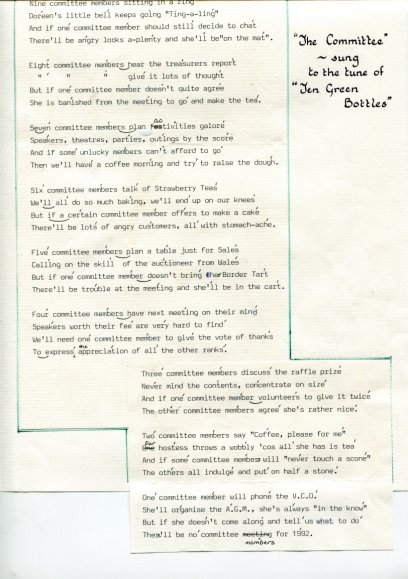 Nine committee members sitting in a ring
Doreen's little bell keeps going "Ting-a-ling"
And if one committee member should still decide to chat
There'll be angry looks a-plenty and she'll be"on the mat".
"The Committee"
~ sung
to the tune of
"Ten Green
Bottles"
Eight committee members hear the treasurers report
" " " " give it lots of thought
But if one committee member doesn't quite agree
She is banished from the meeting to go and make the tea.
Seven committee members plan activities galore
Speakers, theatres, parties, outings by the score
And if some unlucky members can't afford to go
Then we'll have a coffee morning and try to raise the dough.
Six committee members talk of Strawberry Teas
We'll all do so much baking, we'll end up on our knees
But if a certain committee member offers to make a cake
There'll be lots of angry customers, all with stomach-ache.
Five committee members plan a table just for Sales
Calling on the skill of the auctioneer from Wales
But if one committee member doesn't bring her Border Tart
There'll be trouble at the meeting and she'll be in the cart.
Four committee members have next meeting on their mind
Speakers worth their fee are very hard to find
We'll need one committee member to give the vote of thanks
To express the appreciation of all the other ranks.
Three committee members discuss the raffle prize
Never mind the contents, concentrate on size
And if one committee member volunteers to give it twice
The other committee members agree she's rather nice.
Two committee members say "Coffee, please for me"
Our hostess throws a wobbly 'cos all she has is tea
And if some committee members will "never touch a scone"
The others all indulge and put on half a stone.
One committee member will phone the V.C.O.
She'll organise the A.G.M., she's always "in the know"
But if she doesn't come along and tell us what to do
There'll be no committee members for 1992.